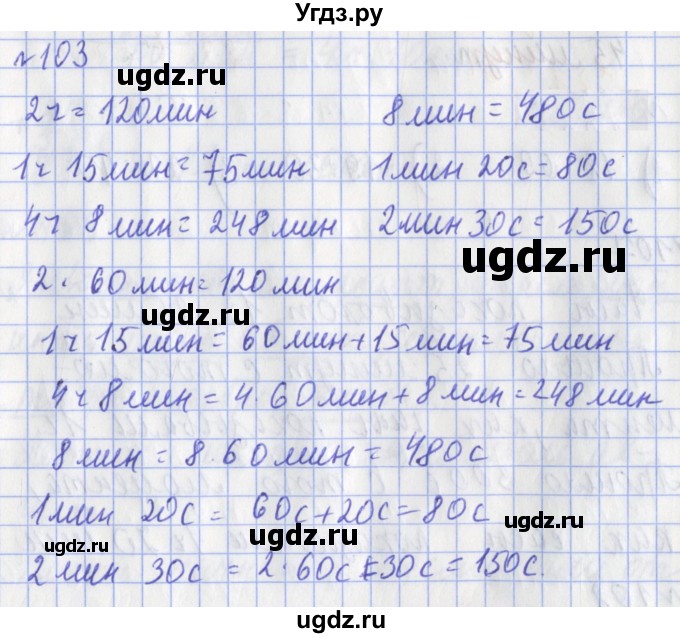 Угдз.ру
№103
ugdz.ru
2ч = 120мин 8мин = 480с
ugdz.ru
1ч 15мин = 75мин 1мин 20с = 80с
4ч 8мин = 248мин 2мин 30с = 150с
ugdz.ru
ugdz.ru
2 · 60мин = 120мин
ugdz.ru
1ч 15мин = 60мин + 15мин = 75мин
4ч 8мин = 4 · 60мин + 8мин = 248мин
ugdz.ru
8мин = 8 · 60мин = 480с
1мин 20с = 60с + 20с = 80с
ugdz.ru
ugdz.ru
2мин 30с = 2 · 60с = 30с = 150с.
ugdz.ru
ugdz.ru
Угдз.ру